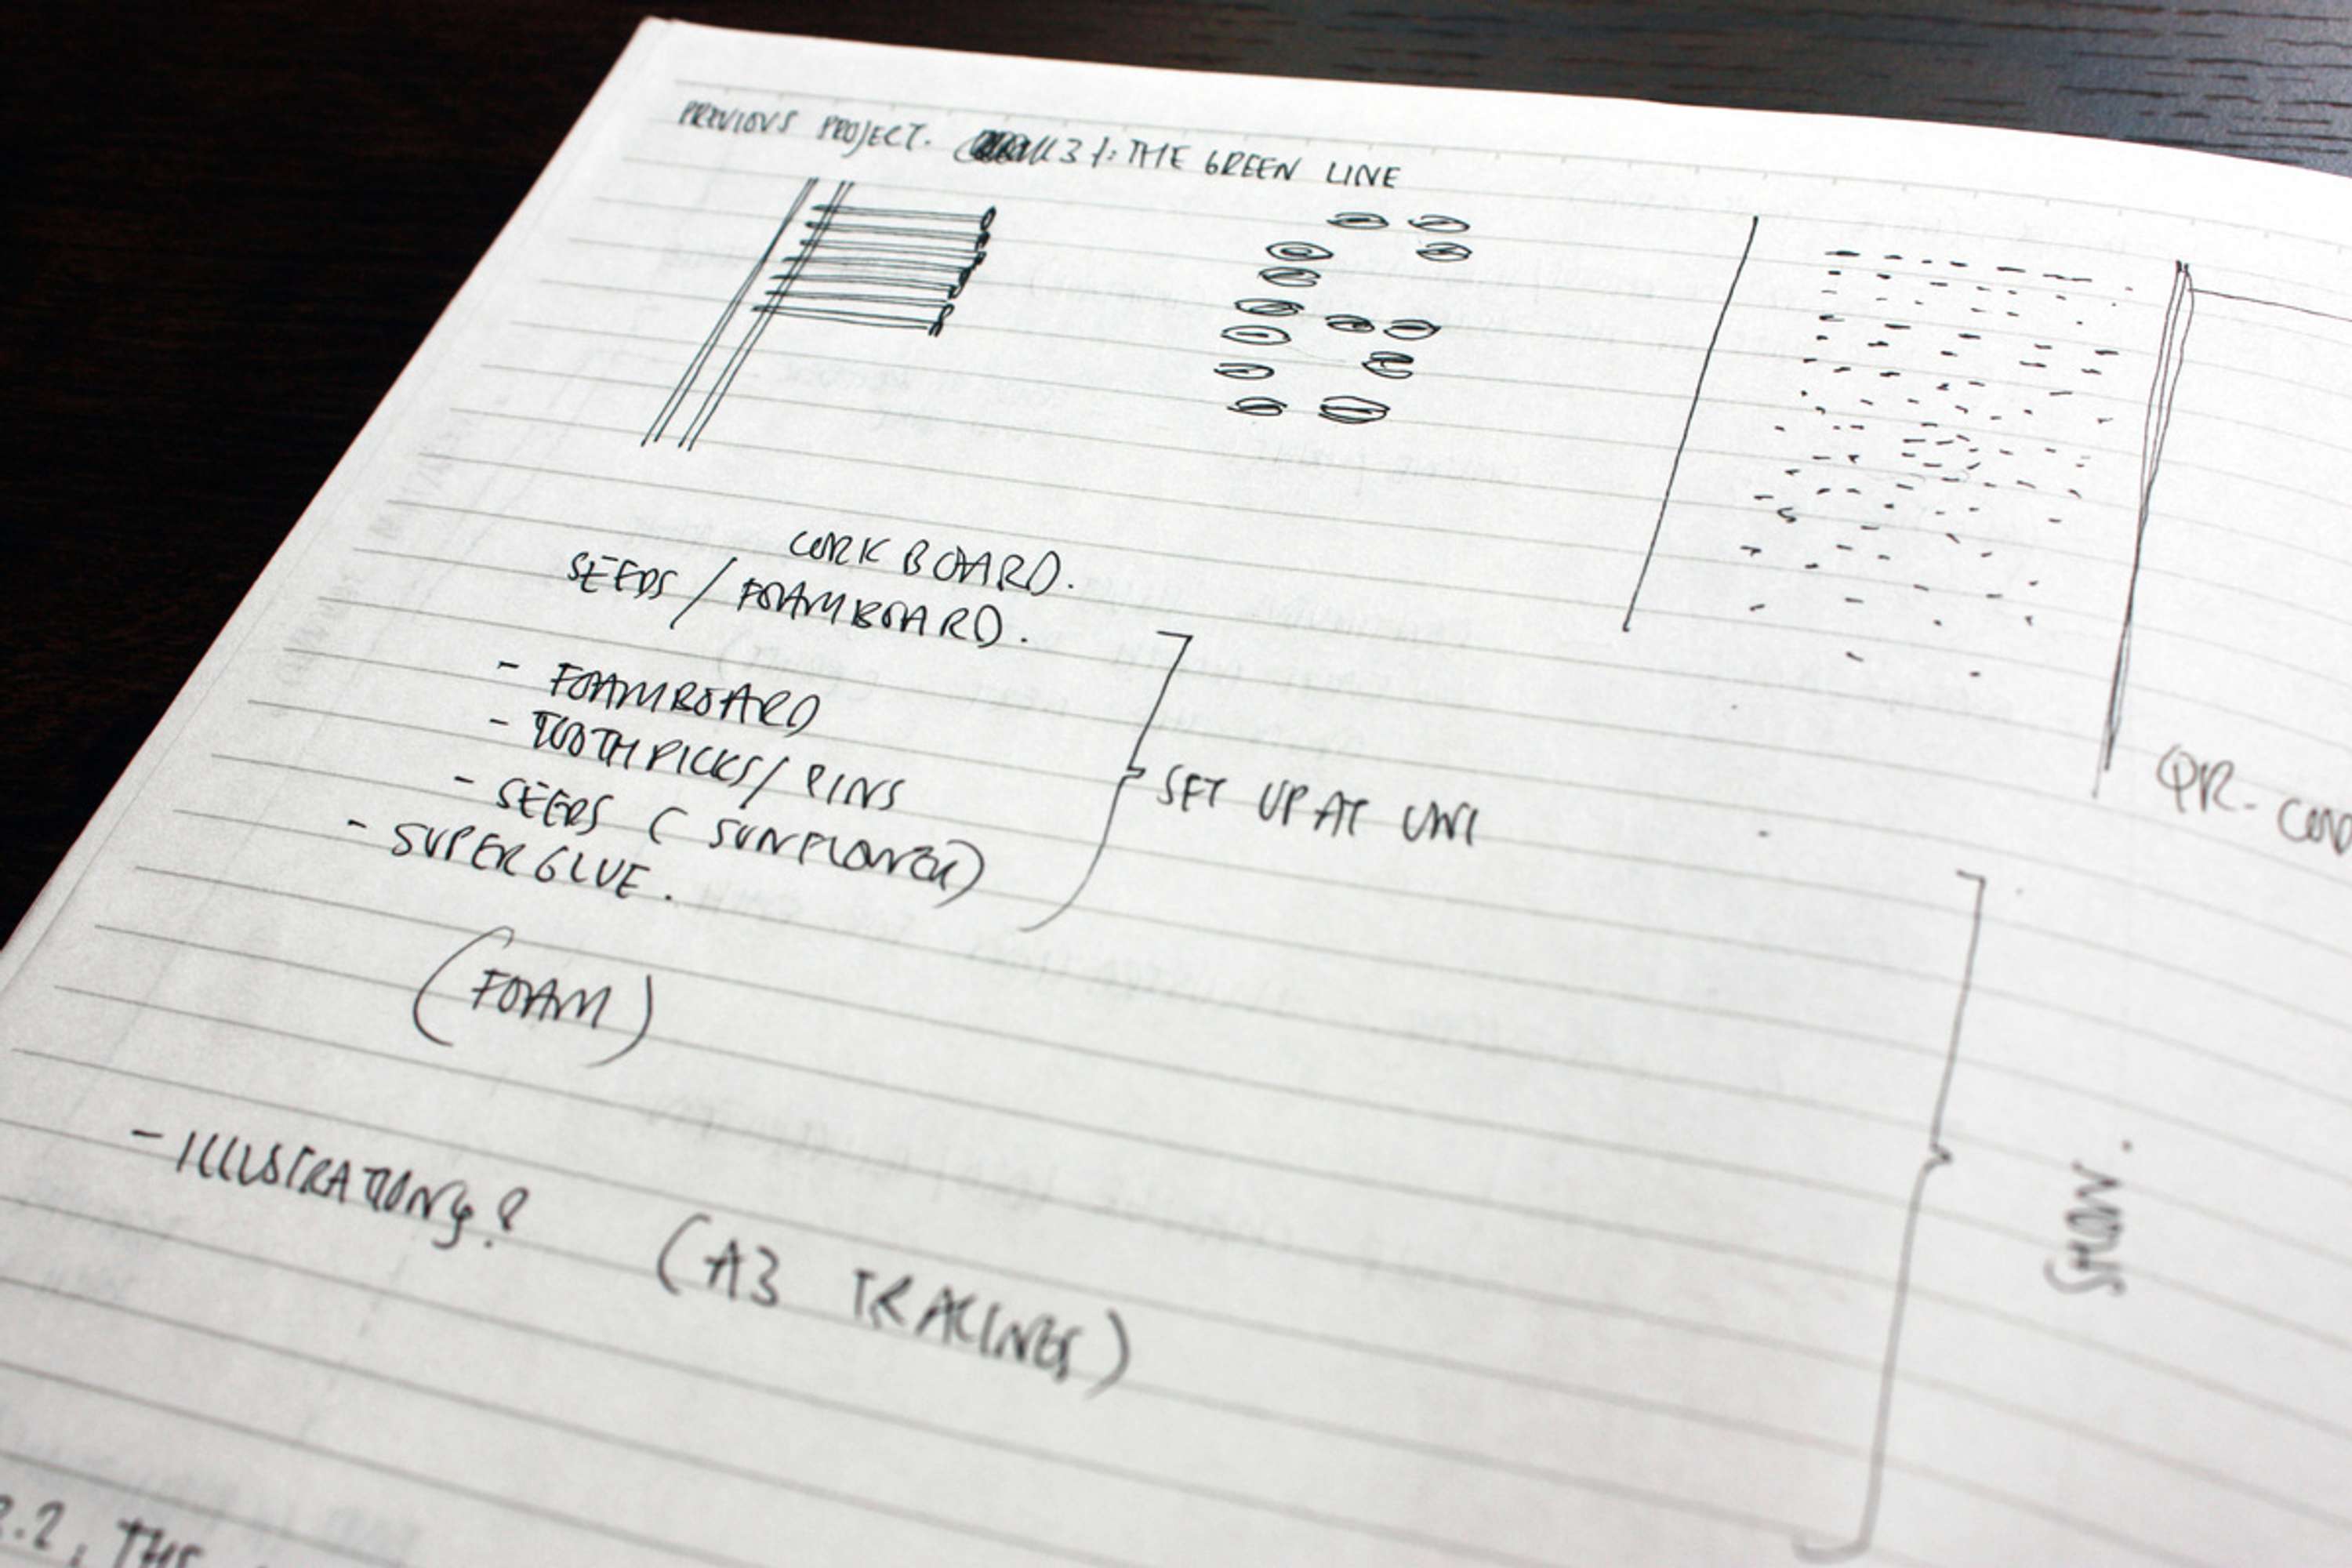 PREVIOUS PROJECT. 3.1: THE GREEN LINE
CORK BOARD.
SEEDS / FOAMBOARD.
- FOAMBOARD
- TOOTHPICKS / PINS
- SEEDS (SUNFLOWER)
- SUPERGLUE.
SET UP AT UNI
QR-
(FOAM)
- ILLUSTRATIONS?
(A3 TRACINGS)
SHOW.
.2, THE